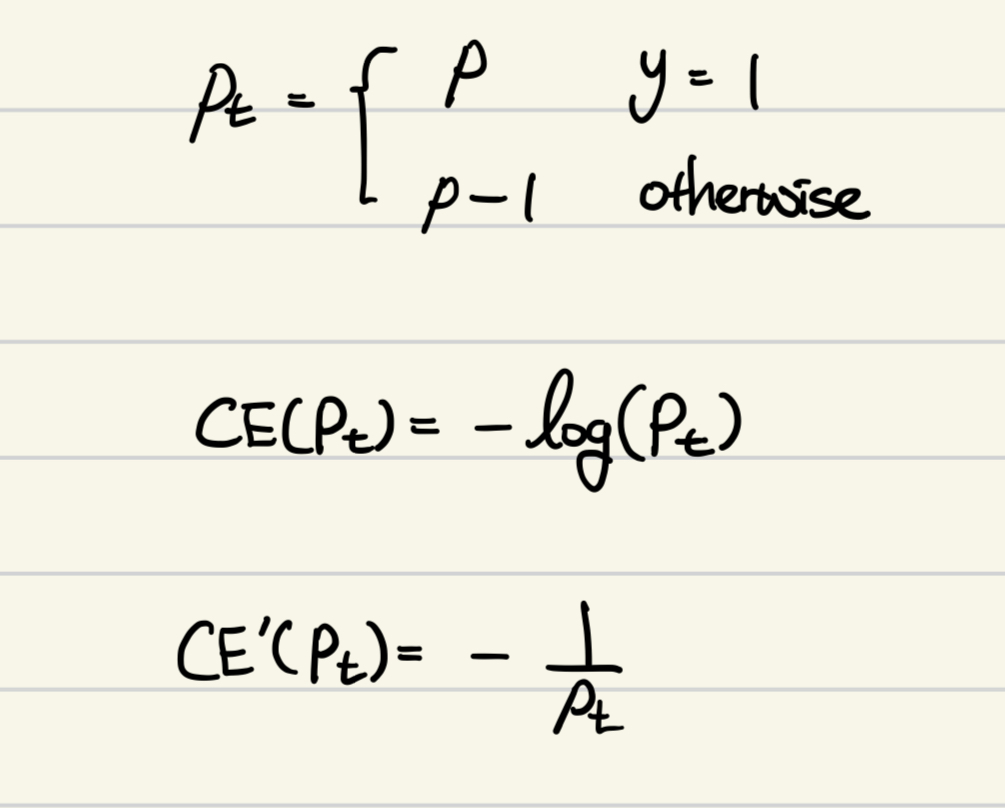 Pt = { P y = 1
p - 1 otherwise
CE(Pt) = - log(Pt)
CE'(Pt) = - 1/Pt